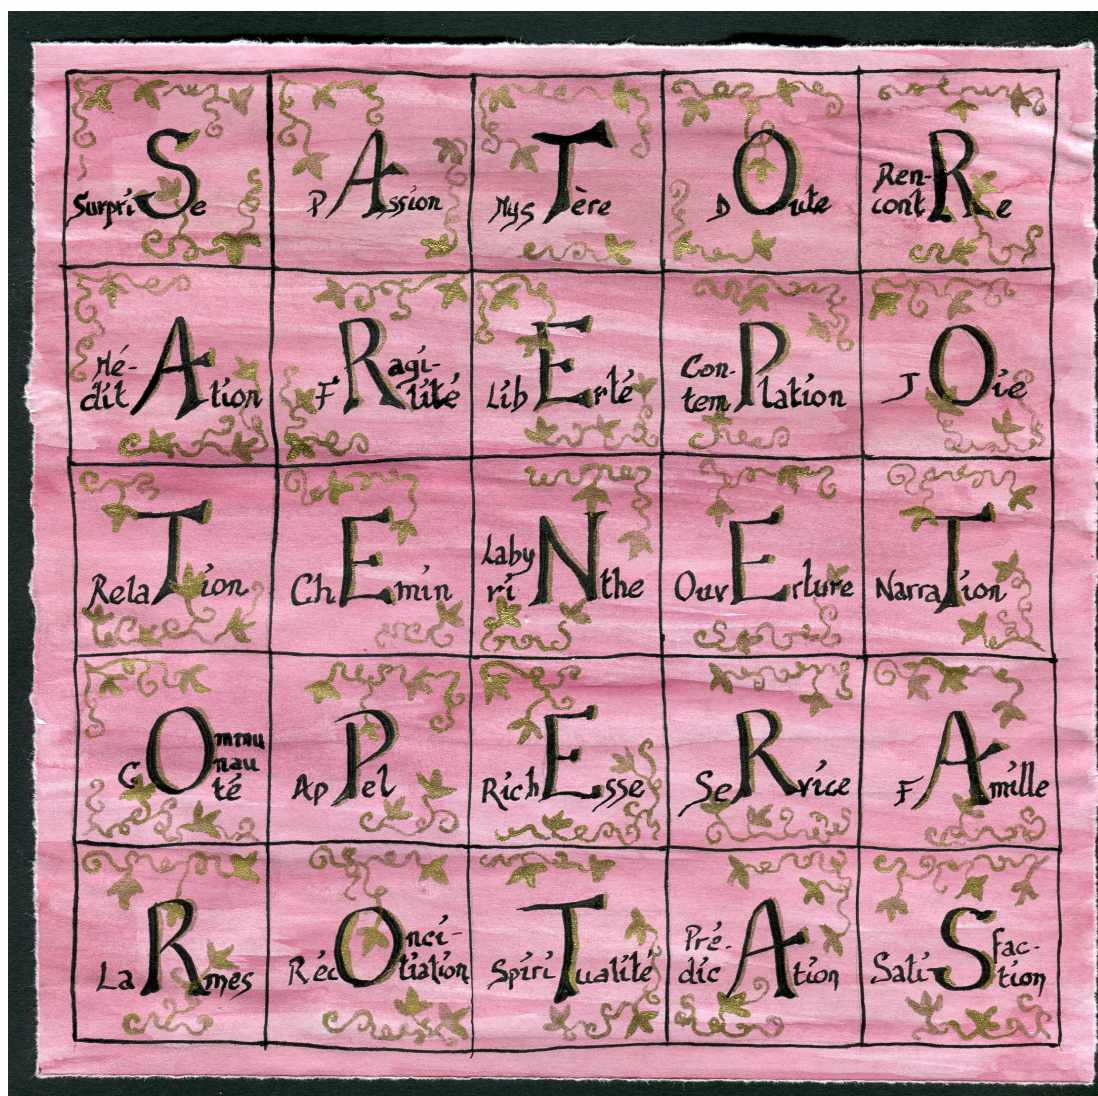 SurpriSe
PAssion
MysTère
DOute
Ren-
contRe
Mé-
ditAtion
FRagi-
lité
LibErté
Con-
temPlation
JOie
RelaTion
ChEmin
Laby
riNthe
OuvErture
NarraTion
COmmu
nau
té
ApPel
RichEsse
SeRvice
FAmille
LaRmes
RécOnci-
liation
SpiriTualité
Pré-
dicAtion
SatiSfac-
tion